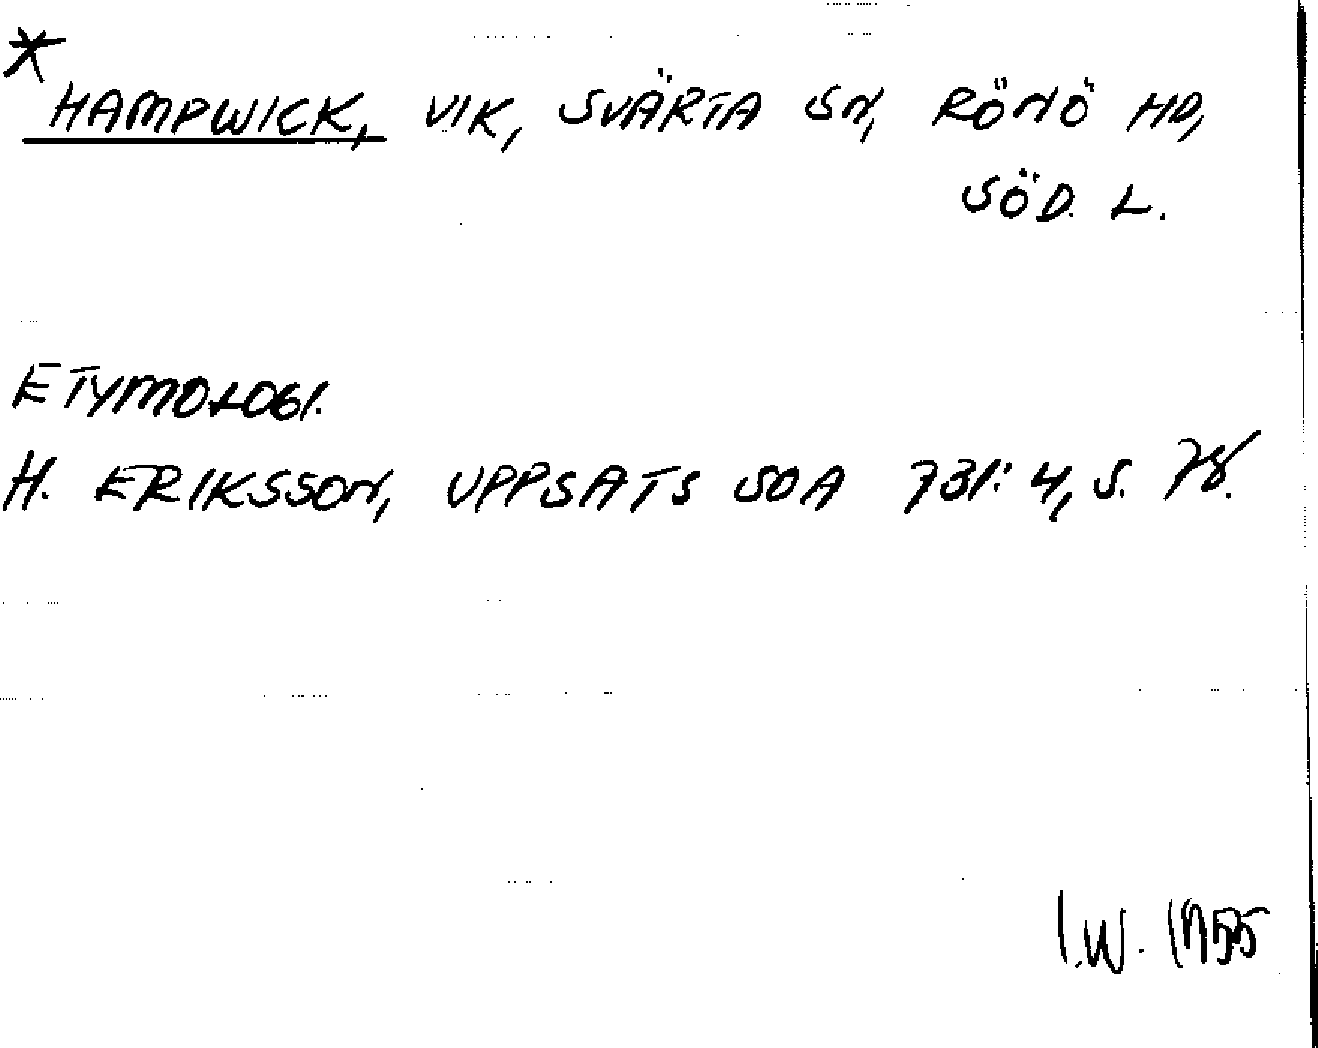 *
HAMPWICK, VIK, SVÄRTA SN, RÖNÖ HD,
SÖD. L.
ETYMOLOGI.
H. ERIKSSON, UPPSATS SOA 731:4, S. 78.
I.W. 1955